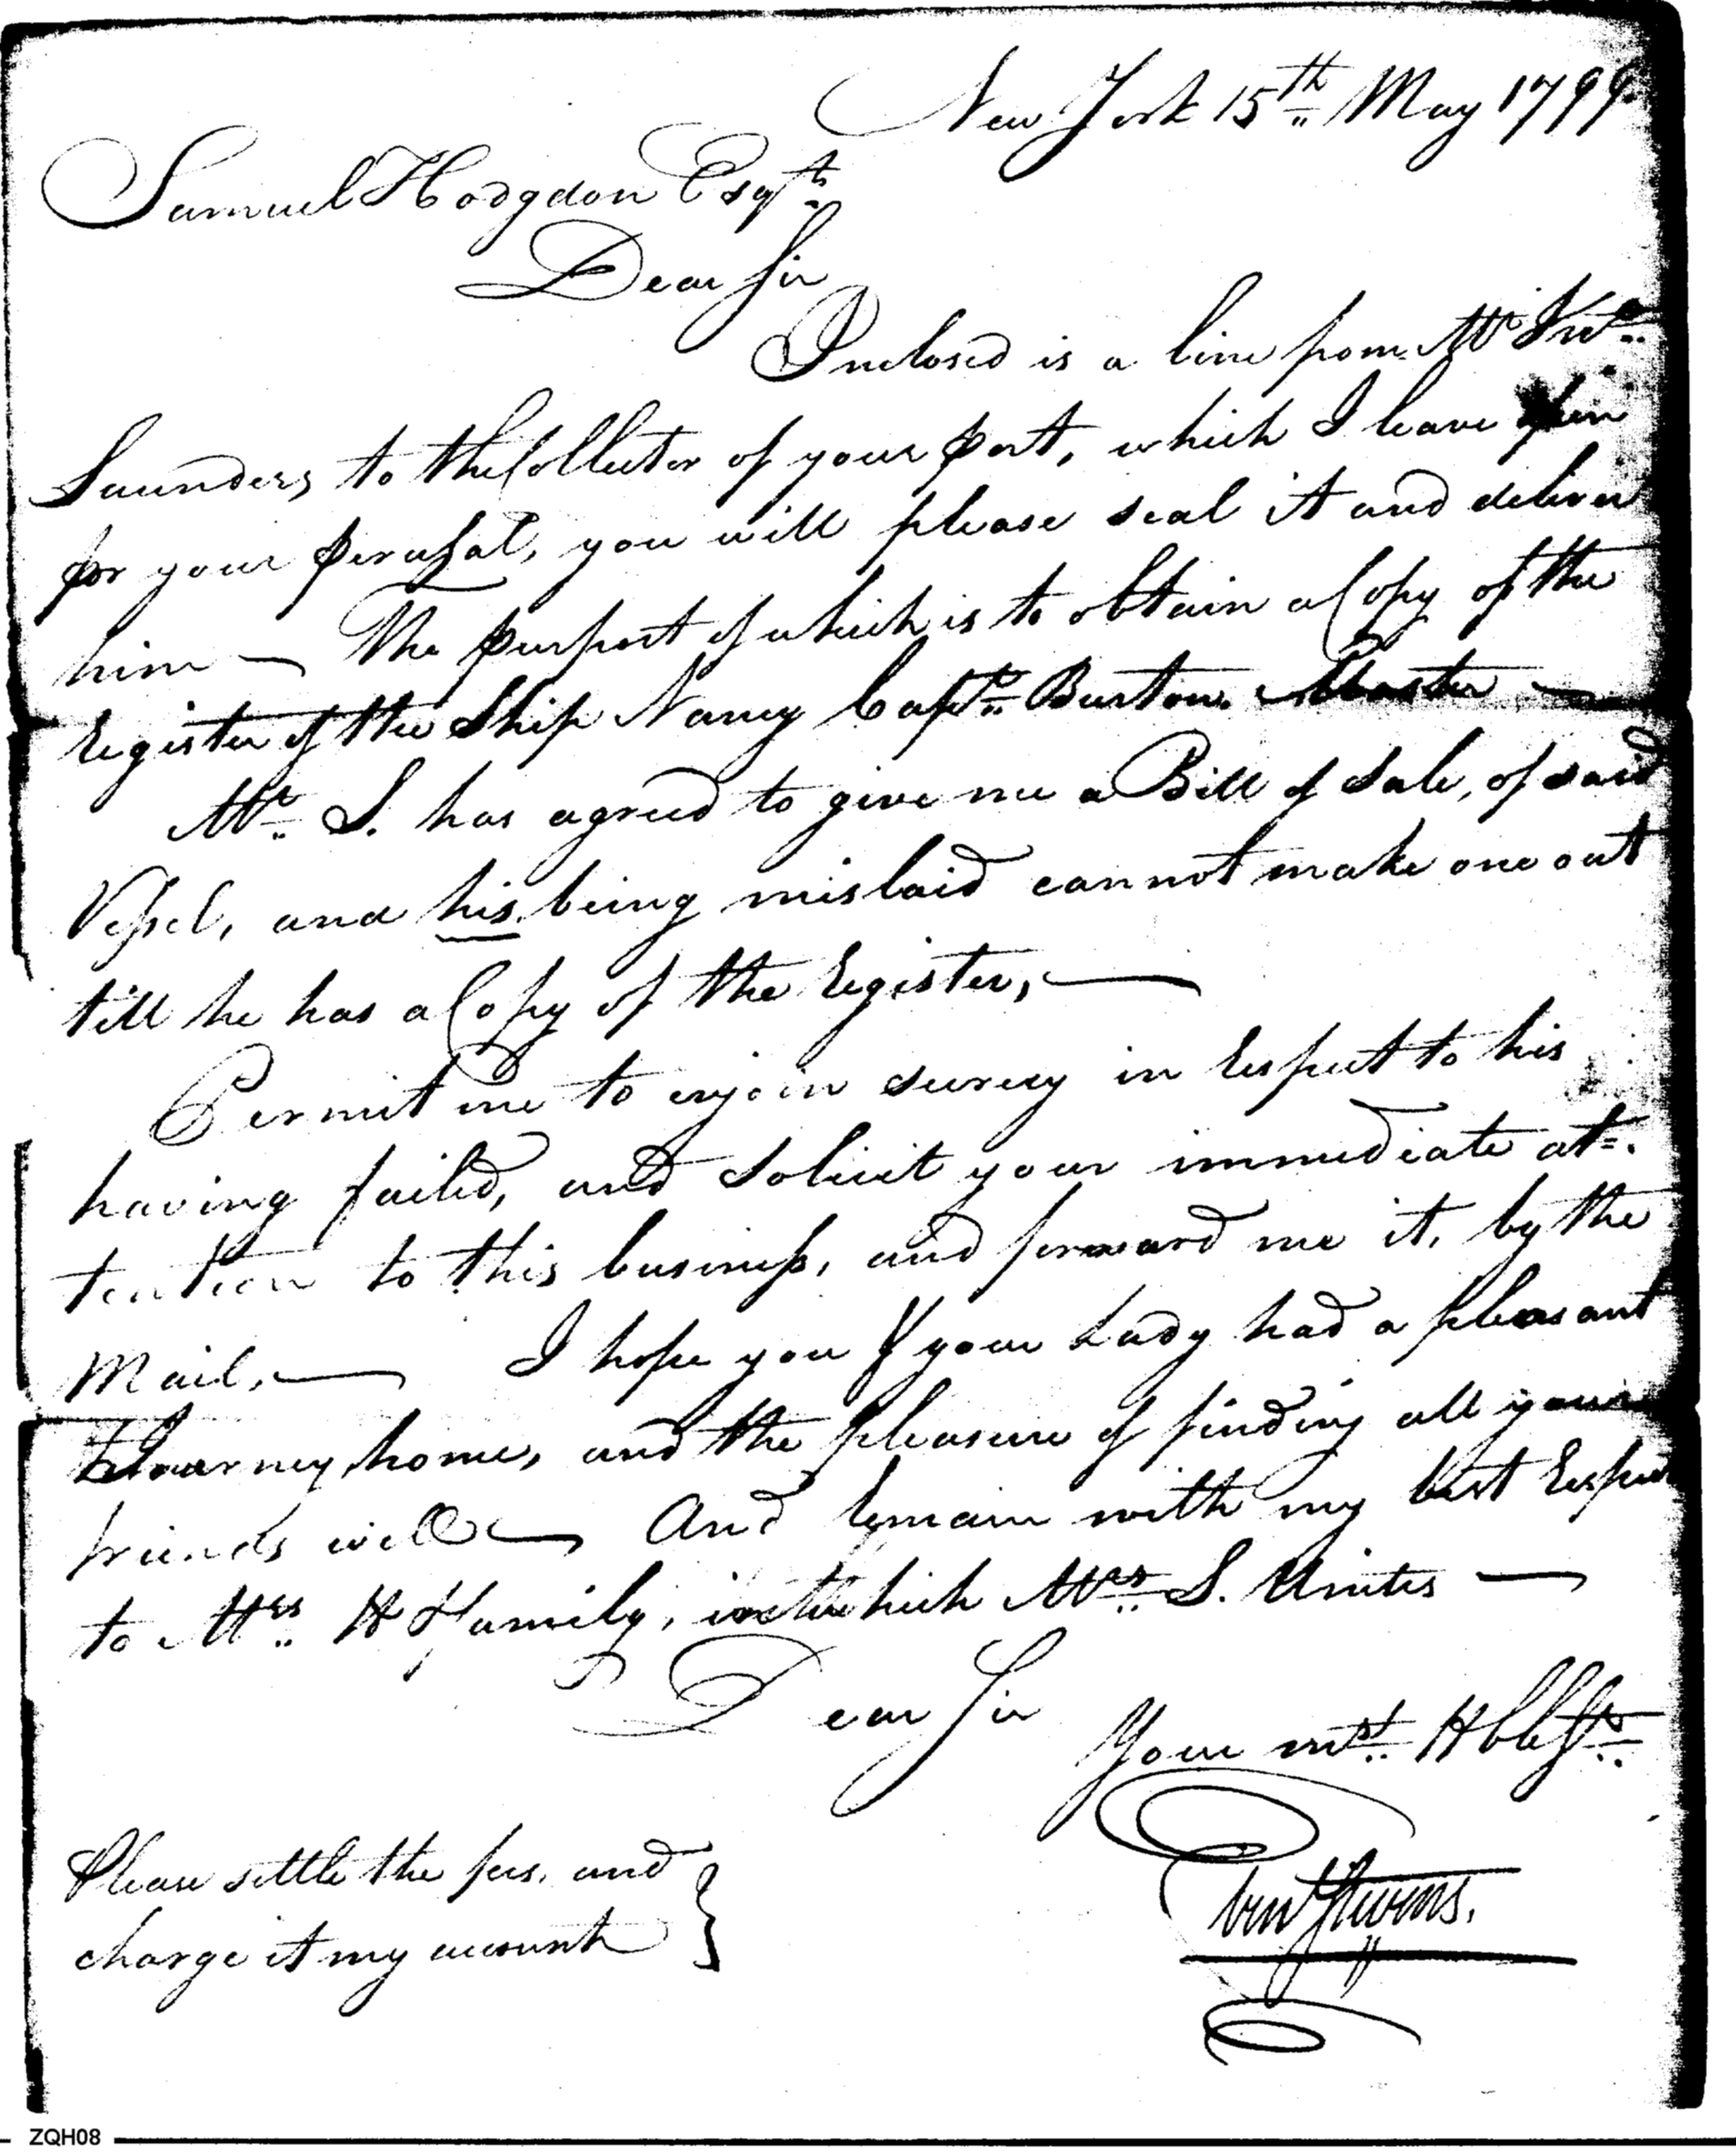 New York 15th May 1799
Samuel Hodgdon Esqr
Dear Sir
Inclosed is a line from Mr
Saunders to the Collector of your port, which I leave open
for your perusal, you will please seal it and deliver
him — The purport of which is to obtain a Copy of the
register of the Ship Nancy Captn Burton Master —
Mr S. has agreed to give me a Bill of Sale, of said
Vessel, and his being mislaid cannot make one out
till he has a Copy of the register, —
Permit me to enjoin secrecy in respect to his
having failed, and solicit your immediate at=
tention to this business, and forward me it, by the
Mail, — I hope you & your Lady had a pleasant
Journey home, and the pleasure of finding all your
friends well — And remain with my best respect
to Mrs H & family, in which Mrs S. Unites —
Dear Sir
Your mst Hble St
Eben Stevens.
Please settle the fees, and
charge it my account
ZQH08